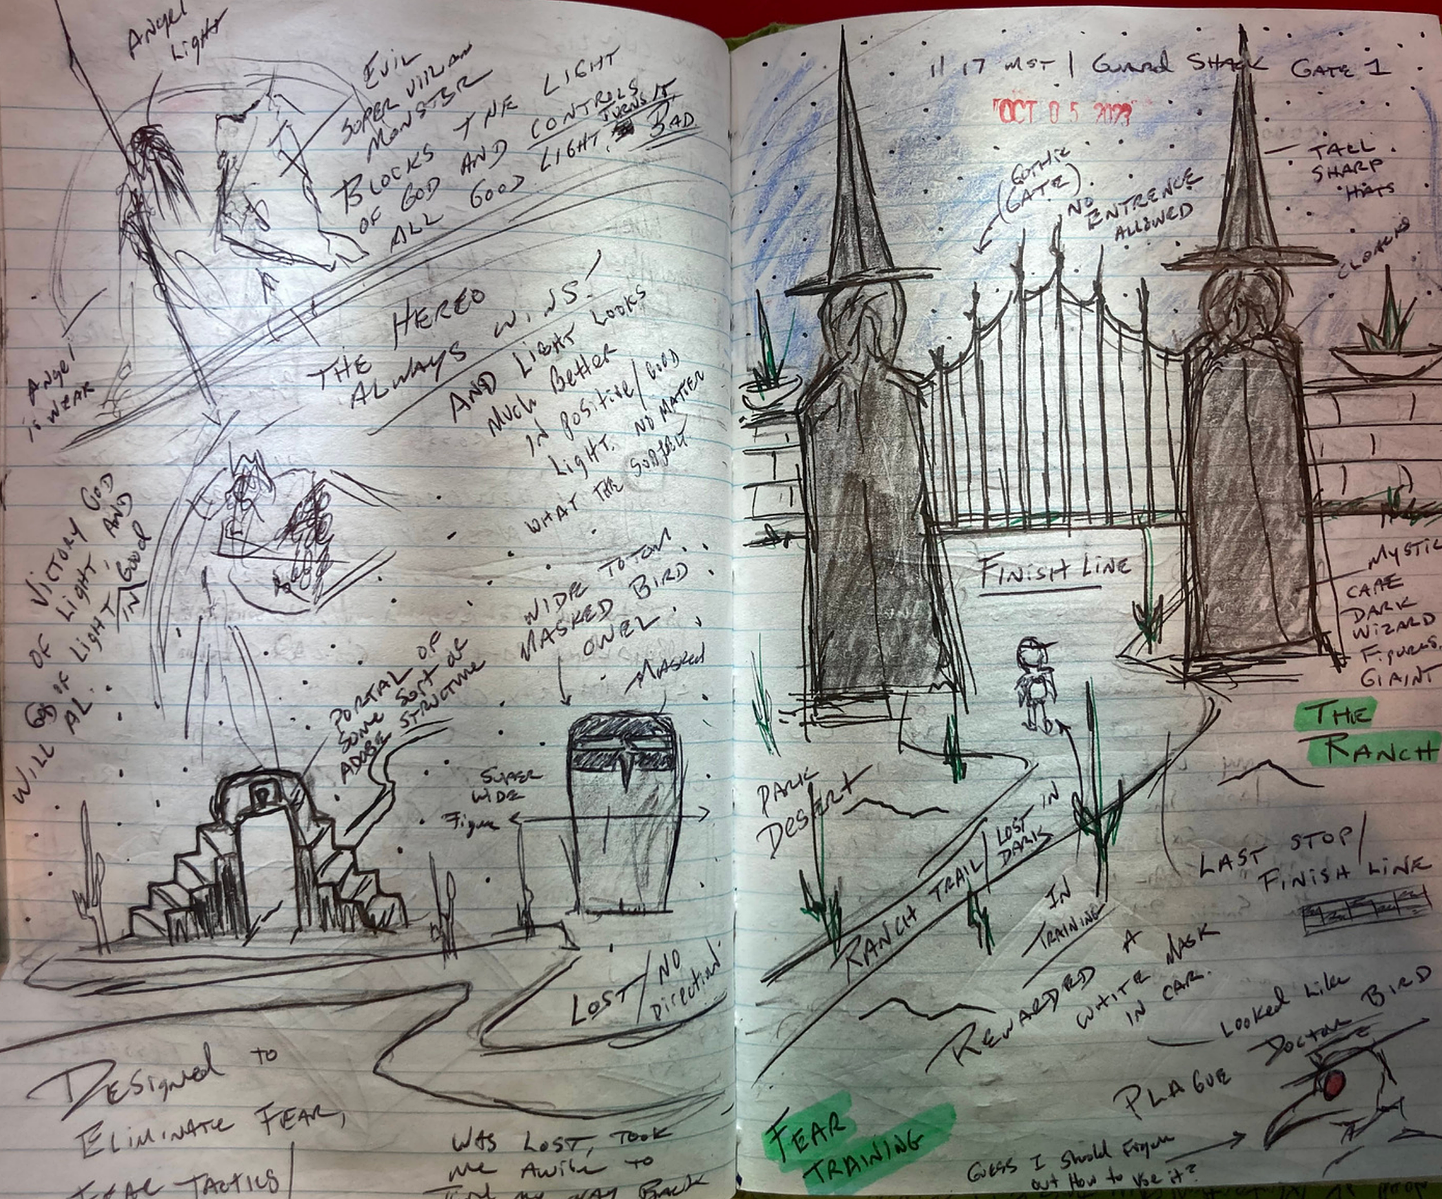 Angel
Light
EVIL
SUPER VILLIAN
MONSTER
BLOCKS THE LIGHT
OF GOD AND CONTROLS
ALL GOOD LIGHT, TURNS IT
BAD
Angel
is WEAK
THE HEREO
ALWAYS WINS!
AND LIGHT LOOKS
MUCH BETTER
IN POSITIVE/GOOD
LIGHT. NO MATTER
WHAT THE SUBJECT
VICTORY GOD
OF LIGHT, AND
OF LIGHT/IN GOOD
WILL AL.
WIDE TOTOM
MASKED BIRD
OWEL
MASKED
PORTAL OF
SOME SORT OF
ADOBE STRUCTURE
SUPER
WIDE
Figure
LOST/NO
Direction!
DESigned TO
ELIMINATE FEAR,
FEAR TACTICS/
WAS LOST, TOOK
me AwHile to
Find my WAY BACK
11 17 MST | GUARD SHACK GATE 1
OCT 05 2023
(GOTHIC
GATE)
NO
ENTRENCE
ALLOWED
TALL
SHARP
HATS
CLOAKS
FINISH LINE
MYSTIC
CAPE
DARK
WIZARD
FIGURES.
GIAINT
THE
RANCH
DARK
DESERT
RANCH TRAIL/LOST IN
DARK
IN
TRAINING
LAST STOP/
FINISH LINE
REWARDED A
WHITE MASK
IN CAR.
LOOKED LIKE
PLAGUE DOCTOR BIRD
FEAR
TRAINING
GUESS I SHOULD FIGURE
OUT HOW TO USE iT?